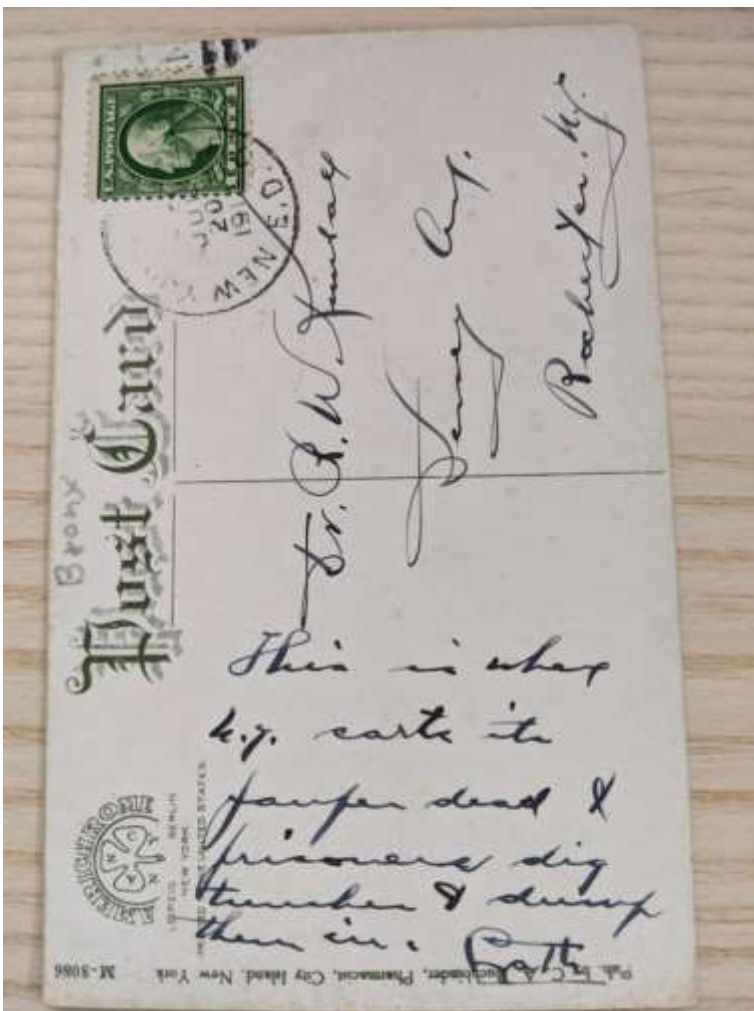 Bronx
Post Card
U.S. POSTAGE
NEW
20
191
Dr. R. W. Kimball
Ave.
Rochester. N.Y.
This is where
N.Y. carts its
pauper dead &
prisoners dig
trenches & dump
them in.
AMERICHROME
LEIPZIG BERLIN
NEW YORK
UNITED STATES
M-3086
Pub. by C. A. Buchbinder, Pharmacist, City Island, New York